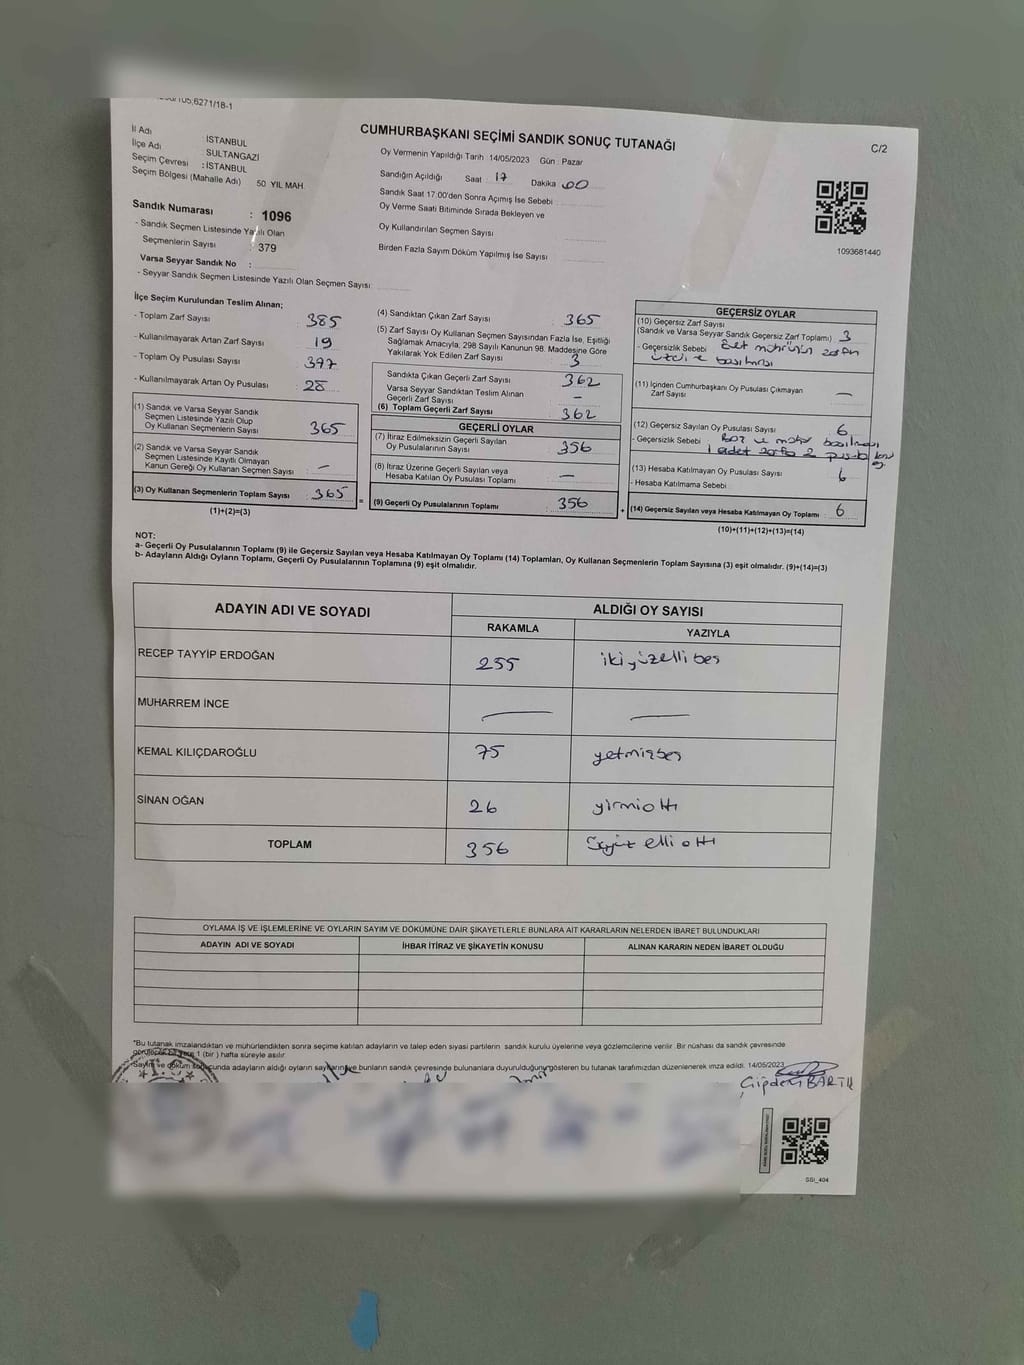 6271/18-1
İl Adı : İSTANBUL
İlçe Adı : SULTANGAZİ
Seçim Çevresi : İSTANBUL
Seçim Bölgesi (Mahalle Adı) 50 YIL MAH.
CUMHURBAŞKANI SEÇİMİ SANDIK SONUÇ TUTANAĞI
C/2
Oy Vermenin Yapıldığı Tarih 14/05/2023 Gün : Pazar
Sandığın Açıldığı Saat 17 Dakika 00
Sandık Saat 17:00'den Sonra Açımış İse Sebebi :
Oy Verme Saati Bitiminde Sırada Bekleyen ve
Oy Kullandırılan Seçmen Sayısı
Birden Fazla Sayım Döküm Yapılmış İse Sayısı
1093681440
Sandık Numarası : 1096
- Sandık Seçmen Listesinde Yazılı Olan
Seçmenlerin Sayısı : 379
Varsa Seyyar Sandık No :
- Seyyar Sandık Seçmen Listesinde Yazılı Olan Seçmen Sayısı:
İlçe Seçim Kurulundan Teslim Alınan;
- Toplam Zarf Sayısı : 385
- Kullanılmayarak Artan Zarf Sayısı : 19
- Toplam Oy Pusulası Sayısı : 397
- Kullanılmayarak Artan Oy Pusulası : 28
(1) Sandık ve Varsa Seyyar Sandık
Seçmen Listesinde Yazılı Olup
Oy Kullanan Seçmenlerin Sayısı : 365
(2) Sandık ve Varsa Seyyar Sandık
Seçmen Listesinde Kayıtlı Olmayan
Kanun Gereği Oy Kullanan Seçmen Sayısı : -
(3) Oy Kullanan Seçmenlerin Toplam Sayısı : 365
(1)+(2)=(3)
(4) Sandıktan Çıkan Zarf Sayısı : 365
(5) Zarf Sayısı Oy Kullanan Seçmen Sayısından Fazla İse, Eşitliği
Sağlamak Amacıyla; 298 Sayılı Kanunun 98. Maddesine Göre
Yakılarak Yok Edilen Zarf Sayısı : 3
Sandıkta Çıkan Geçerli Zarf Sayısı : 362
Varsa Seyyar Sandıktan Teslim Alınan
Geçerli Zarf Sayısı : -
(6) Toplam Geçerli Zarf Sayısı : 362
GEÇERLİ OYLAR
(7) İtiraz Edilmeksizin Geçerli Sayılan
Oy Pusulalarının Sayısı : 356
(8) İtiraz Üzerine Geçerli Sayılan veya
Hesaba Katılan Oy Pusulası Toplamı : -
= (9) Geçerli Oy Pusulalarının Toplamı : 356
GEÇERSİZ OYLAR
(10) Geçersiz Zarf Sayısı
(Sandık ve Varsa Seyyar Sandık Geçersiz Zarf Toplamı) 3
- Geçersizlik Sebebi
(11) İçinden Cumhurbaşkanı Oy Pusulası Çıkmayan
Zarf Sayısı : -
(12) Geçersiz Sayılan Oy Pusulası Sayısı : 6
- Geçersizlik Sebebi
(13) Hesaba Katılmayan Oy Pusulası Sayısı : 6
- Hesaba Katılmama Sebebi
+ (14) Geçersiz Sayılan veya Hesaba Katılmayan Oy Toplamı : 6
(10)+(11)+(12)+(13)=(14)
NOT:
a- Geçerli Oy Pusulalarının Toplamı (9) ile Geçersiz Sayılan veya Hesaba Katılmayan Oy Toplamı (14) Toplamları, Oy Kullanan Seçmenlerin Toplam Sayısına (3) eşit olmalıdır. (9)+(14)=(3)
b- Adayların Aldığı Oyların Toplamı, Geçerli Oy Pusulalarının Toplamına (9) eşit olmalıdır.
ADAYIN ADI VE SOYADI
ALDIĞI OY SAYISI
RAKAMLA YAZIYLA
RECEP TAYYİP ERDOĞAN 255 ikiyüzellibeş
MUHARREM İNCE
KEMAL KILIÇDAROĞLU 75 yetmişbeş
SİNAN OĞAN 26 yirmialtı
TOPLAM 356 üçyüz elli altı
OYLAMA İŞ VE İŞLEMLERİNE VE OYLARIN SAYIM VE DÖKÜMÜNE DAİR ŞİKAYETLERLE BUNLARA AİT KARARLARIN NELERDEN İBARET BULUNDUKLARI
ADAYIN ADI VE SOYADI İHBAR İTİRAZ VE ŞİKAYETİN KONUSU ALINAN KARARIN NEDEN İBARET OLDUĞU
*Bu tutanak imzalandıktan ve mühürlendikten sonra seçime katılan adayların ve talep eden siyasi partilerin sandık kurulu üyelerine veya gözlemcilerine verilir. Bir nüshası da sandık çevresinde
1 (bir ) hafta süreyle asılır.
Sayım ve döküm sonucunda adayların aldığı oyların sayılarını ve bunların sandık çevresinde bulunanlara duyurulduğunu gösteren bu tutanak tarafımızdan düzenlenerek imza edildi. 14/05/2023
SSI_404